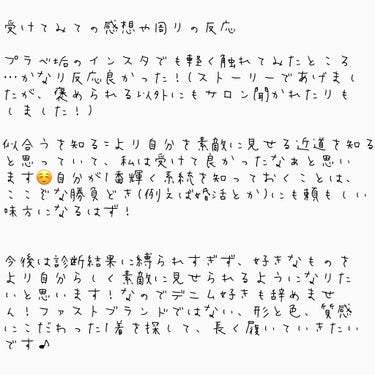 受けてみての感想や周りの反応
プラベ垢のインスタでも軽く触れてみたところ
…かなり反応良かった!(ストーリーであげまし
たが、褒められる以外にもサロン聞かれたりも
しました!)
似合うを知る=より自分を素敵に見せる近道を知る
と思っていて、私は受けて良かったなぁと思い
ます☺️自分が1番輝く系統を知っておくことは、
ここぞな勝負どき(例えば婚活とか)にも頼もしい
味方になるはず!
今後は診断結果に縛られすぎず、好きなものを
より自分らしく素敵に見せられるようになりた
いと思います!なのでデニム好きも辞めませ
ん!ファストブランドではない、形と色、質感
にこだわった1着を探して、長く履いていきたい
です♪